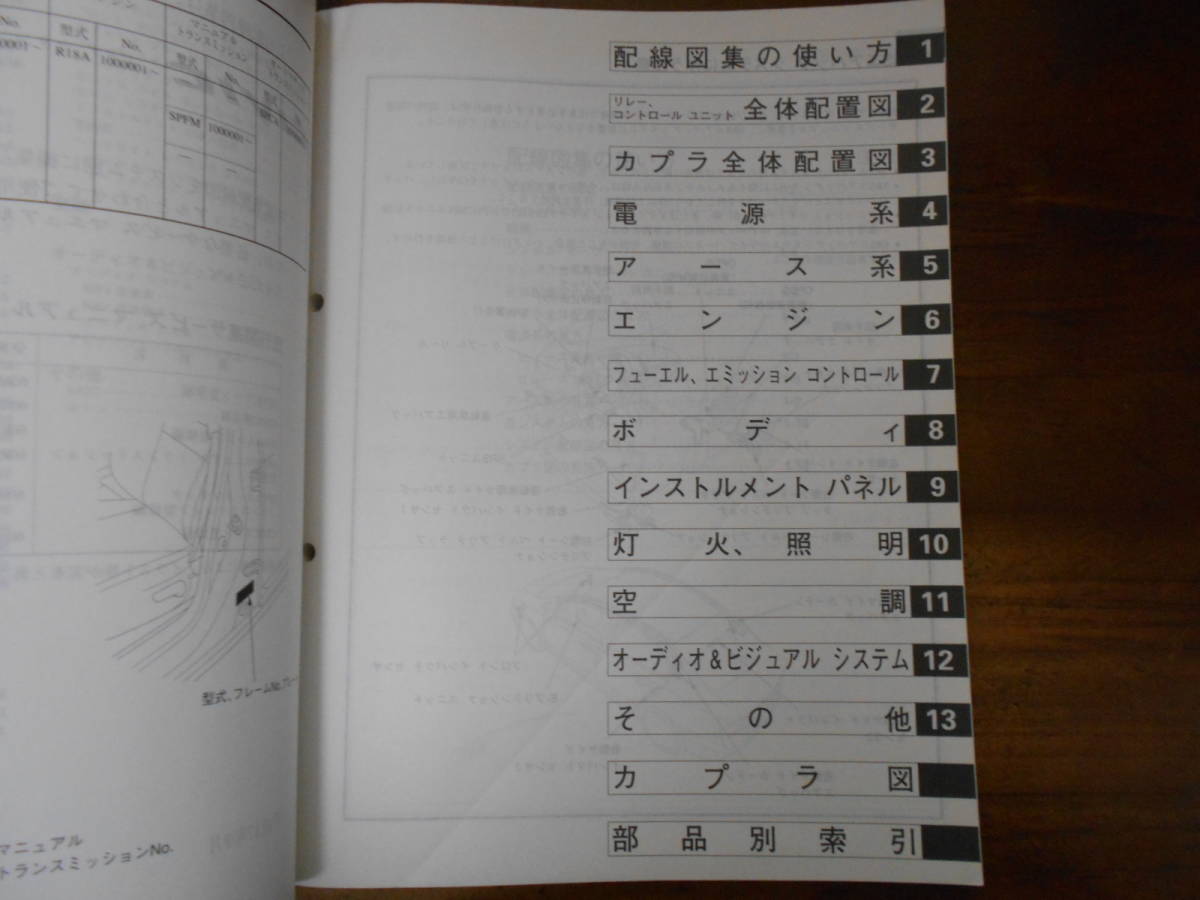 No.
型式
No.
マニュアル
トランスミッション
型式
No.
R18A
1000001～
SPFM
1000001～
型式、フレームNo.
マニュアル
トランスミッションNo.
配線図集の使い方 1
リレー、
コントロール ユニット 全体配置図 2
カプラ全体配置図 3
電源系 4
アース系 5
エンジン 6
フューエル、エミッション コントロール 7
ボディ 8
インストルメント パネル 9
灯火、照明 10
空調 11
オーディオ&ビジュアル システム 12
その他 13
カプラ図
部品別索引